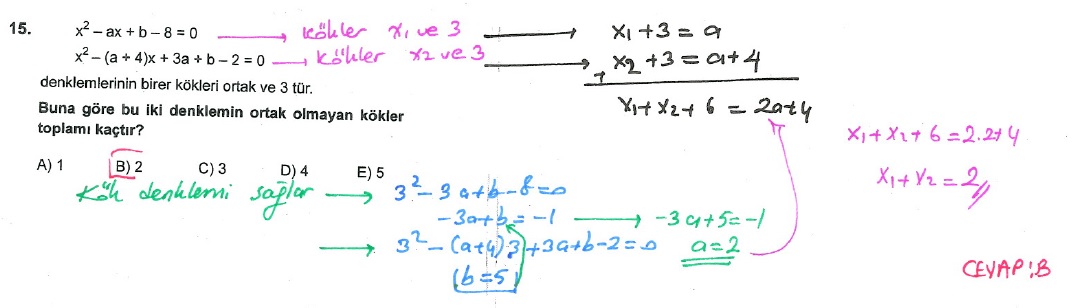 15. x² – ax + b – 8 = 0 → kökler x₁ ve 3 → x₁ + 3 = a
x² – (a + 4)x + 3a + b – 2 = 0 → kökler x₂ ve 3 → x₂ + 3 = a + 4
+
denklemlerinin birer kökleri ortak ve 3 tür.
x₁ + x₂ + 6 = 2a + 4
Buna göre bu iki denklemin ortak olmayan kökler
toplamı kaçtır?
x₁ + x₂ + 6 = 2.2 + 4
x₁ + x₂ = 2 //
A) 1 B) 2 C) 3 D) 4 E) 5
Kök denklemi sağlar → 3² – 3a + b – 8 = 0
–3a + b = –1 → –3a + 5 = –1
→ 3² – (a + 4)3 + 3a + b – 2 = 0 a = 2
(b = 5)
CEVAP: B